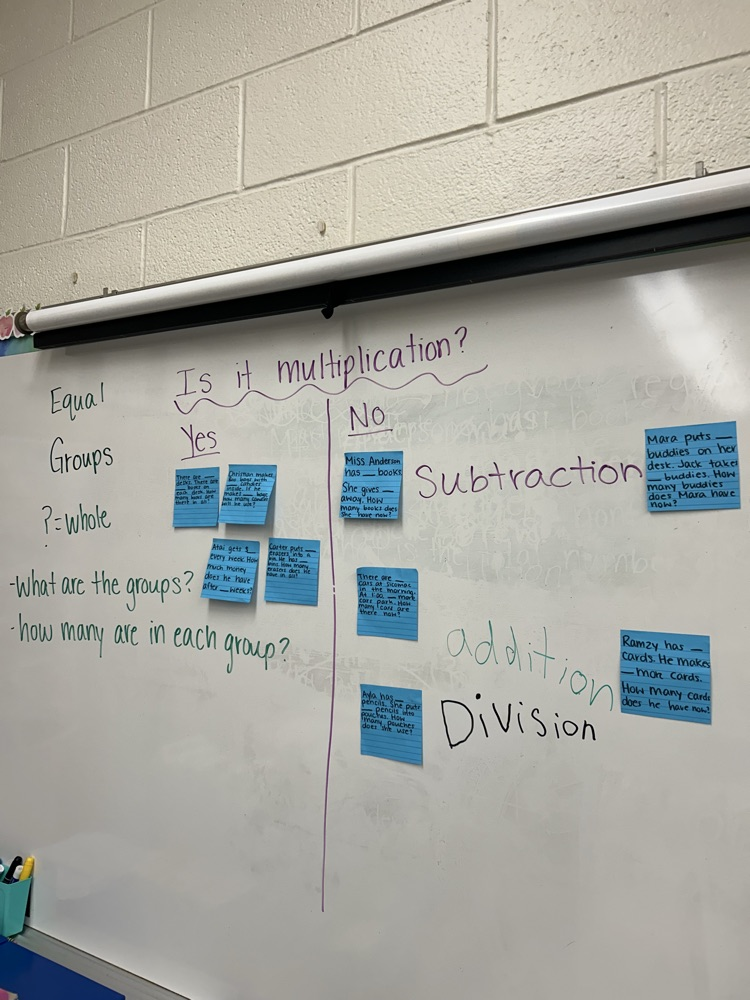 Is it multiplication?
Equal
Groups
?=whole
-what are the groups?
-how many are in each group?
Yes
There are __
desks. There are
__ boxes on
each desk. How
many boxes are
there in all?
Christian makes
box with
inside. If he
makes __ boxes
how many
Atai gets $__
every week. How
much money
does he have
after __ weeks?
Carter puts __
erasers into a
box. He has __
bins. How many
erasers does he
have in all?
No
Miss Anderson
has __ books
She gives __
away. How
many books does
she have now?
Subtraction
Mara puts __
buddies on her
desk. Jack takes
__ buddies. How
many buddies
does Mara have
now?
There are __
cars at
in the morning.
At 1:00, __ more
cars park. How
many cars are
there now?
addition
Ramzy has __
cards. He makes
__ more cards.
How many cards
does he have now?
Ayla has __
pencils. She puts
__ pencils into
pouches. How
many pouches
does she use?
Division